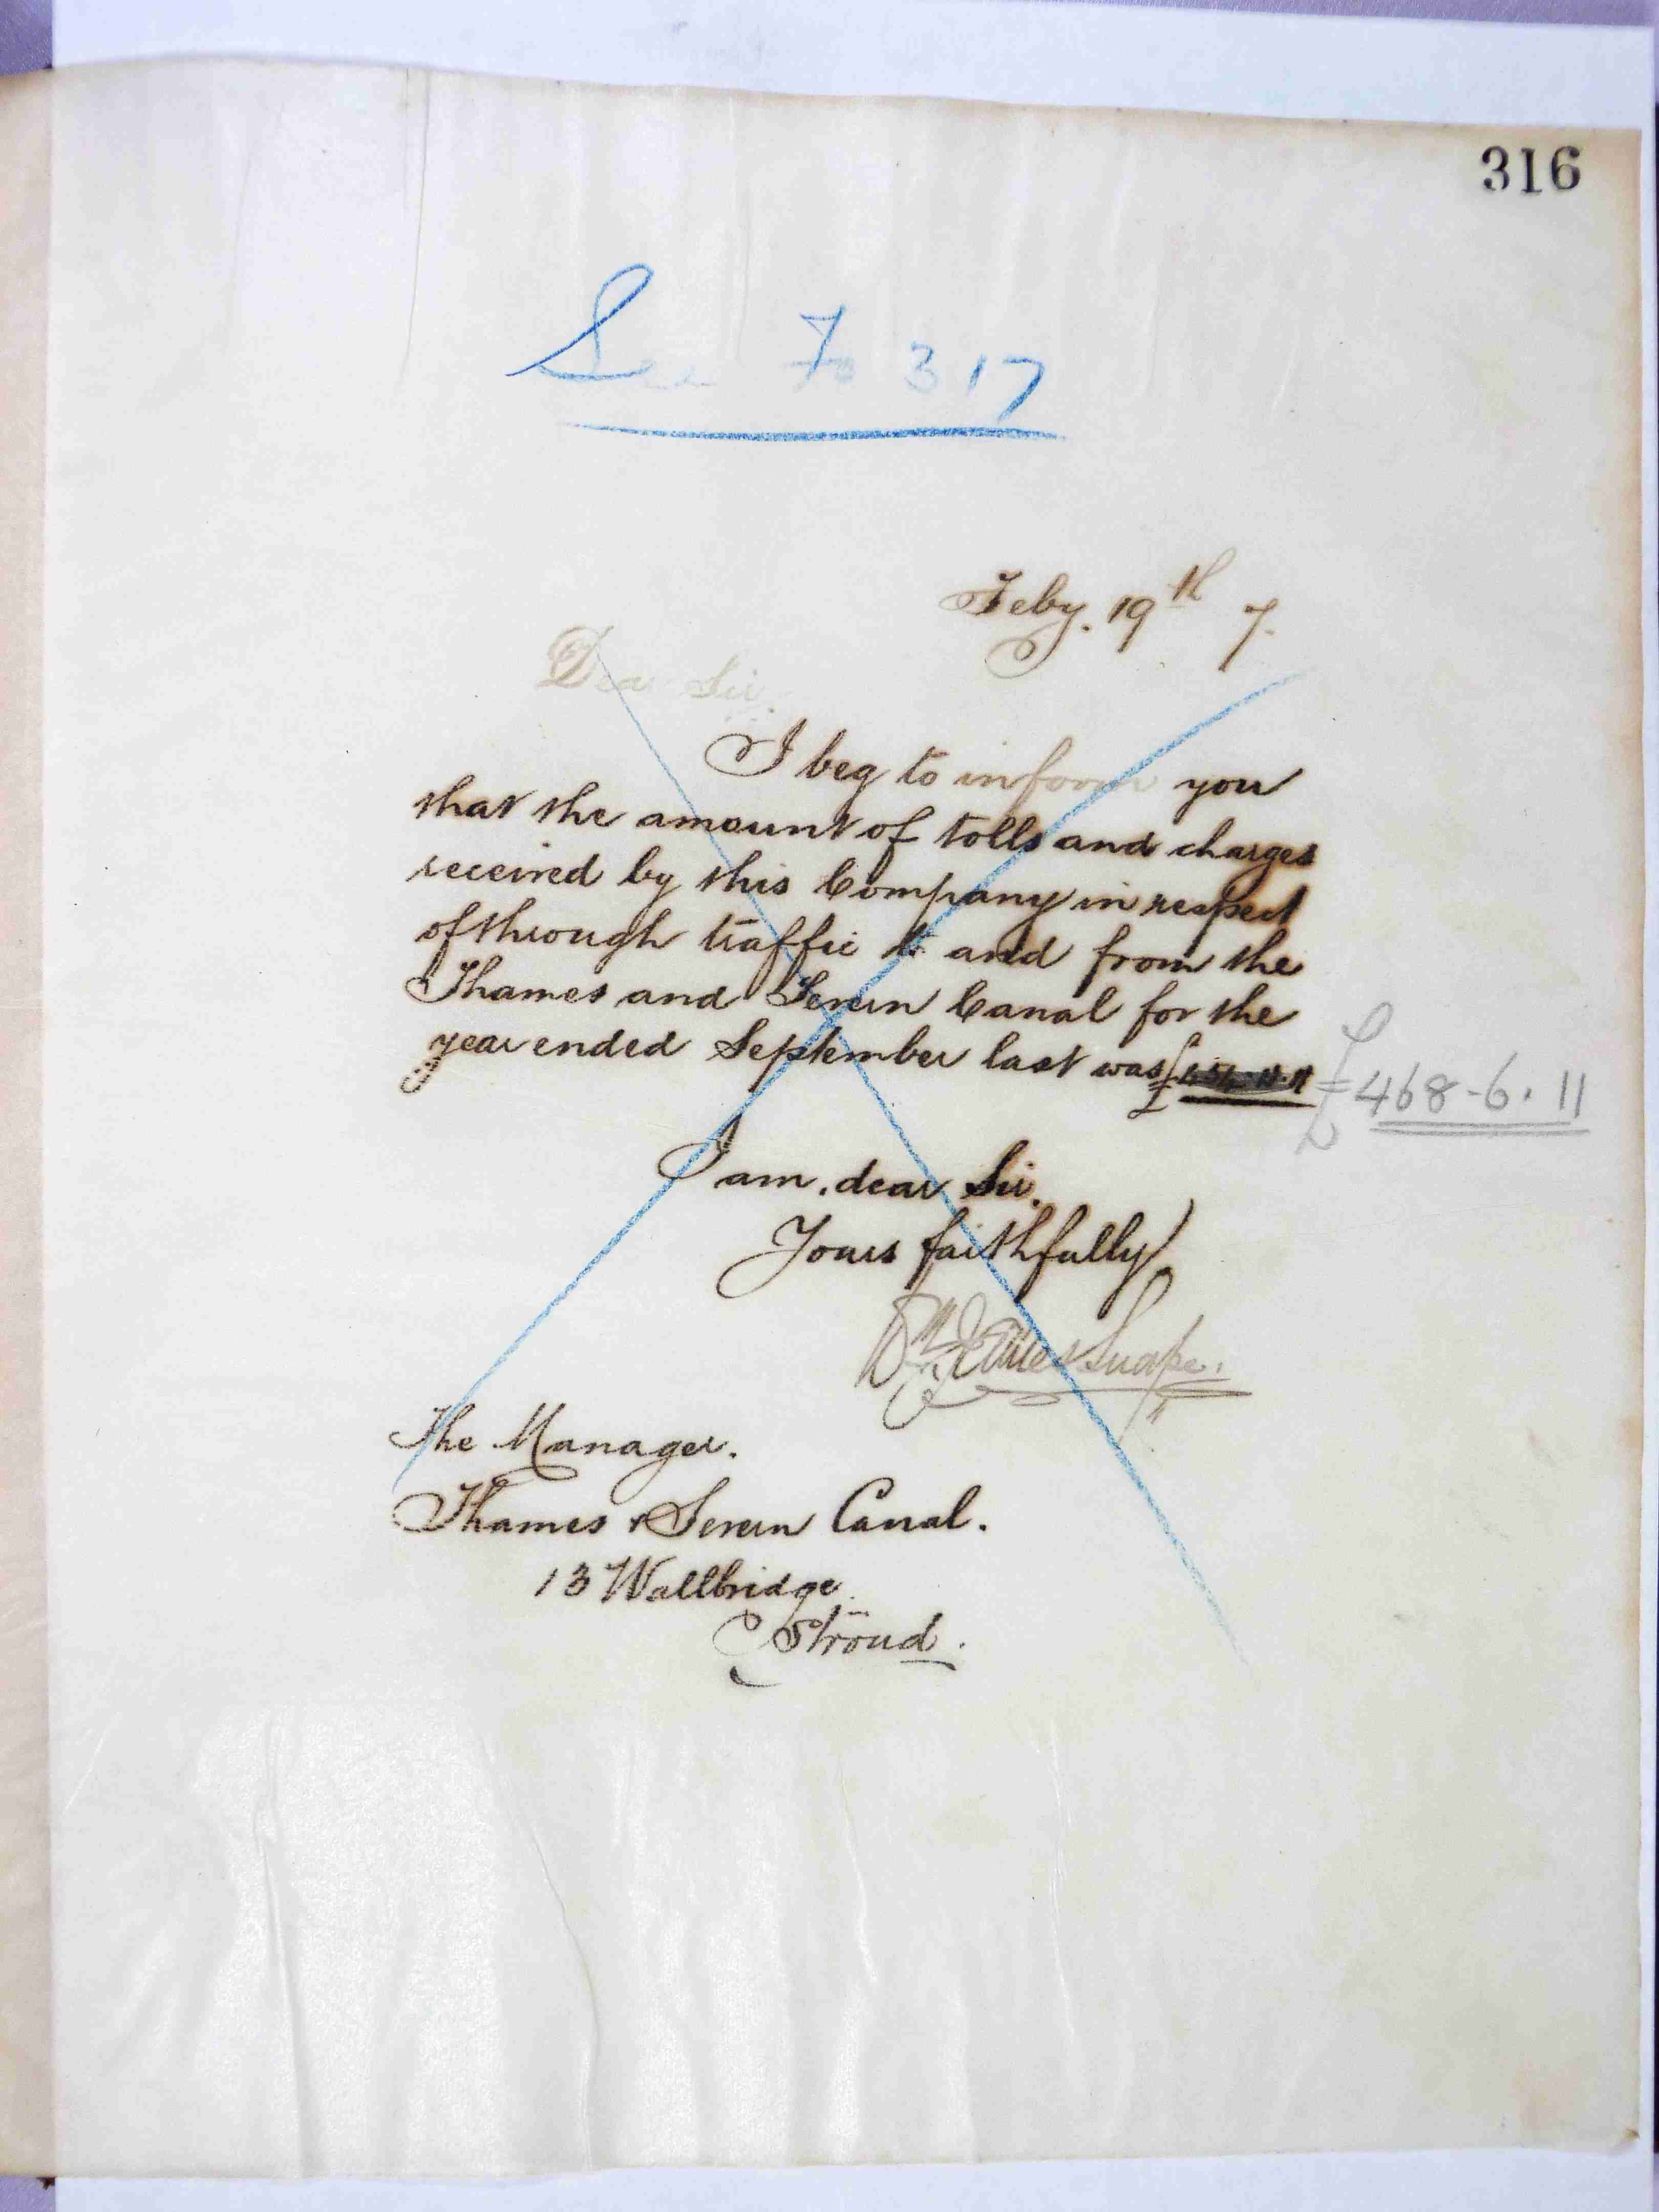 316
See Fo 317
Feby. 19th 7.
Dear Sir,
I beg to inform you
that the amount of tolls and charges
received by this Company in respect
of through traffic to and from the
Thames and Severn Canal for the
year ended September last was £ £468-6.11
I am, dear Sir.
Yours faithfully
Snape.
The Manager.
Thames & Severn Canal.
13 Wallbridge
Stroud.